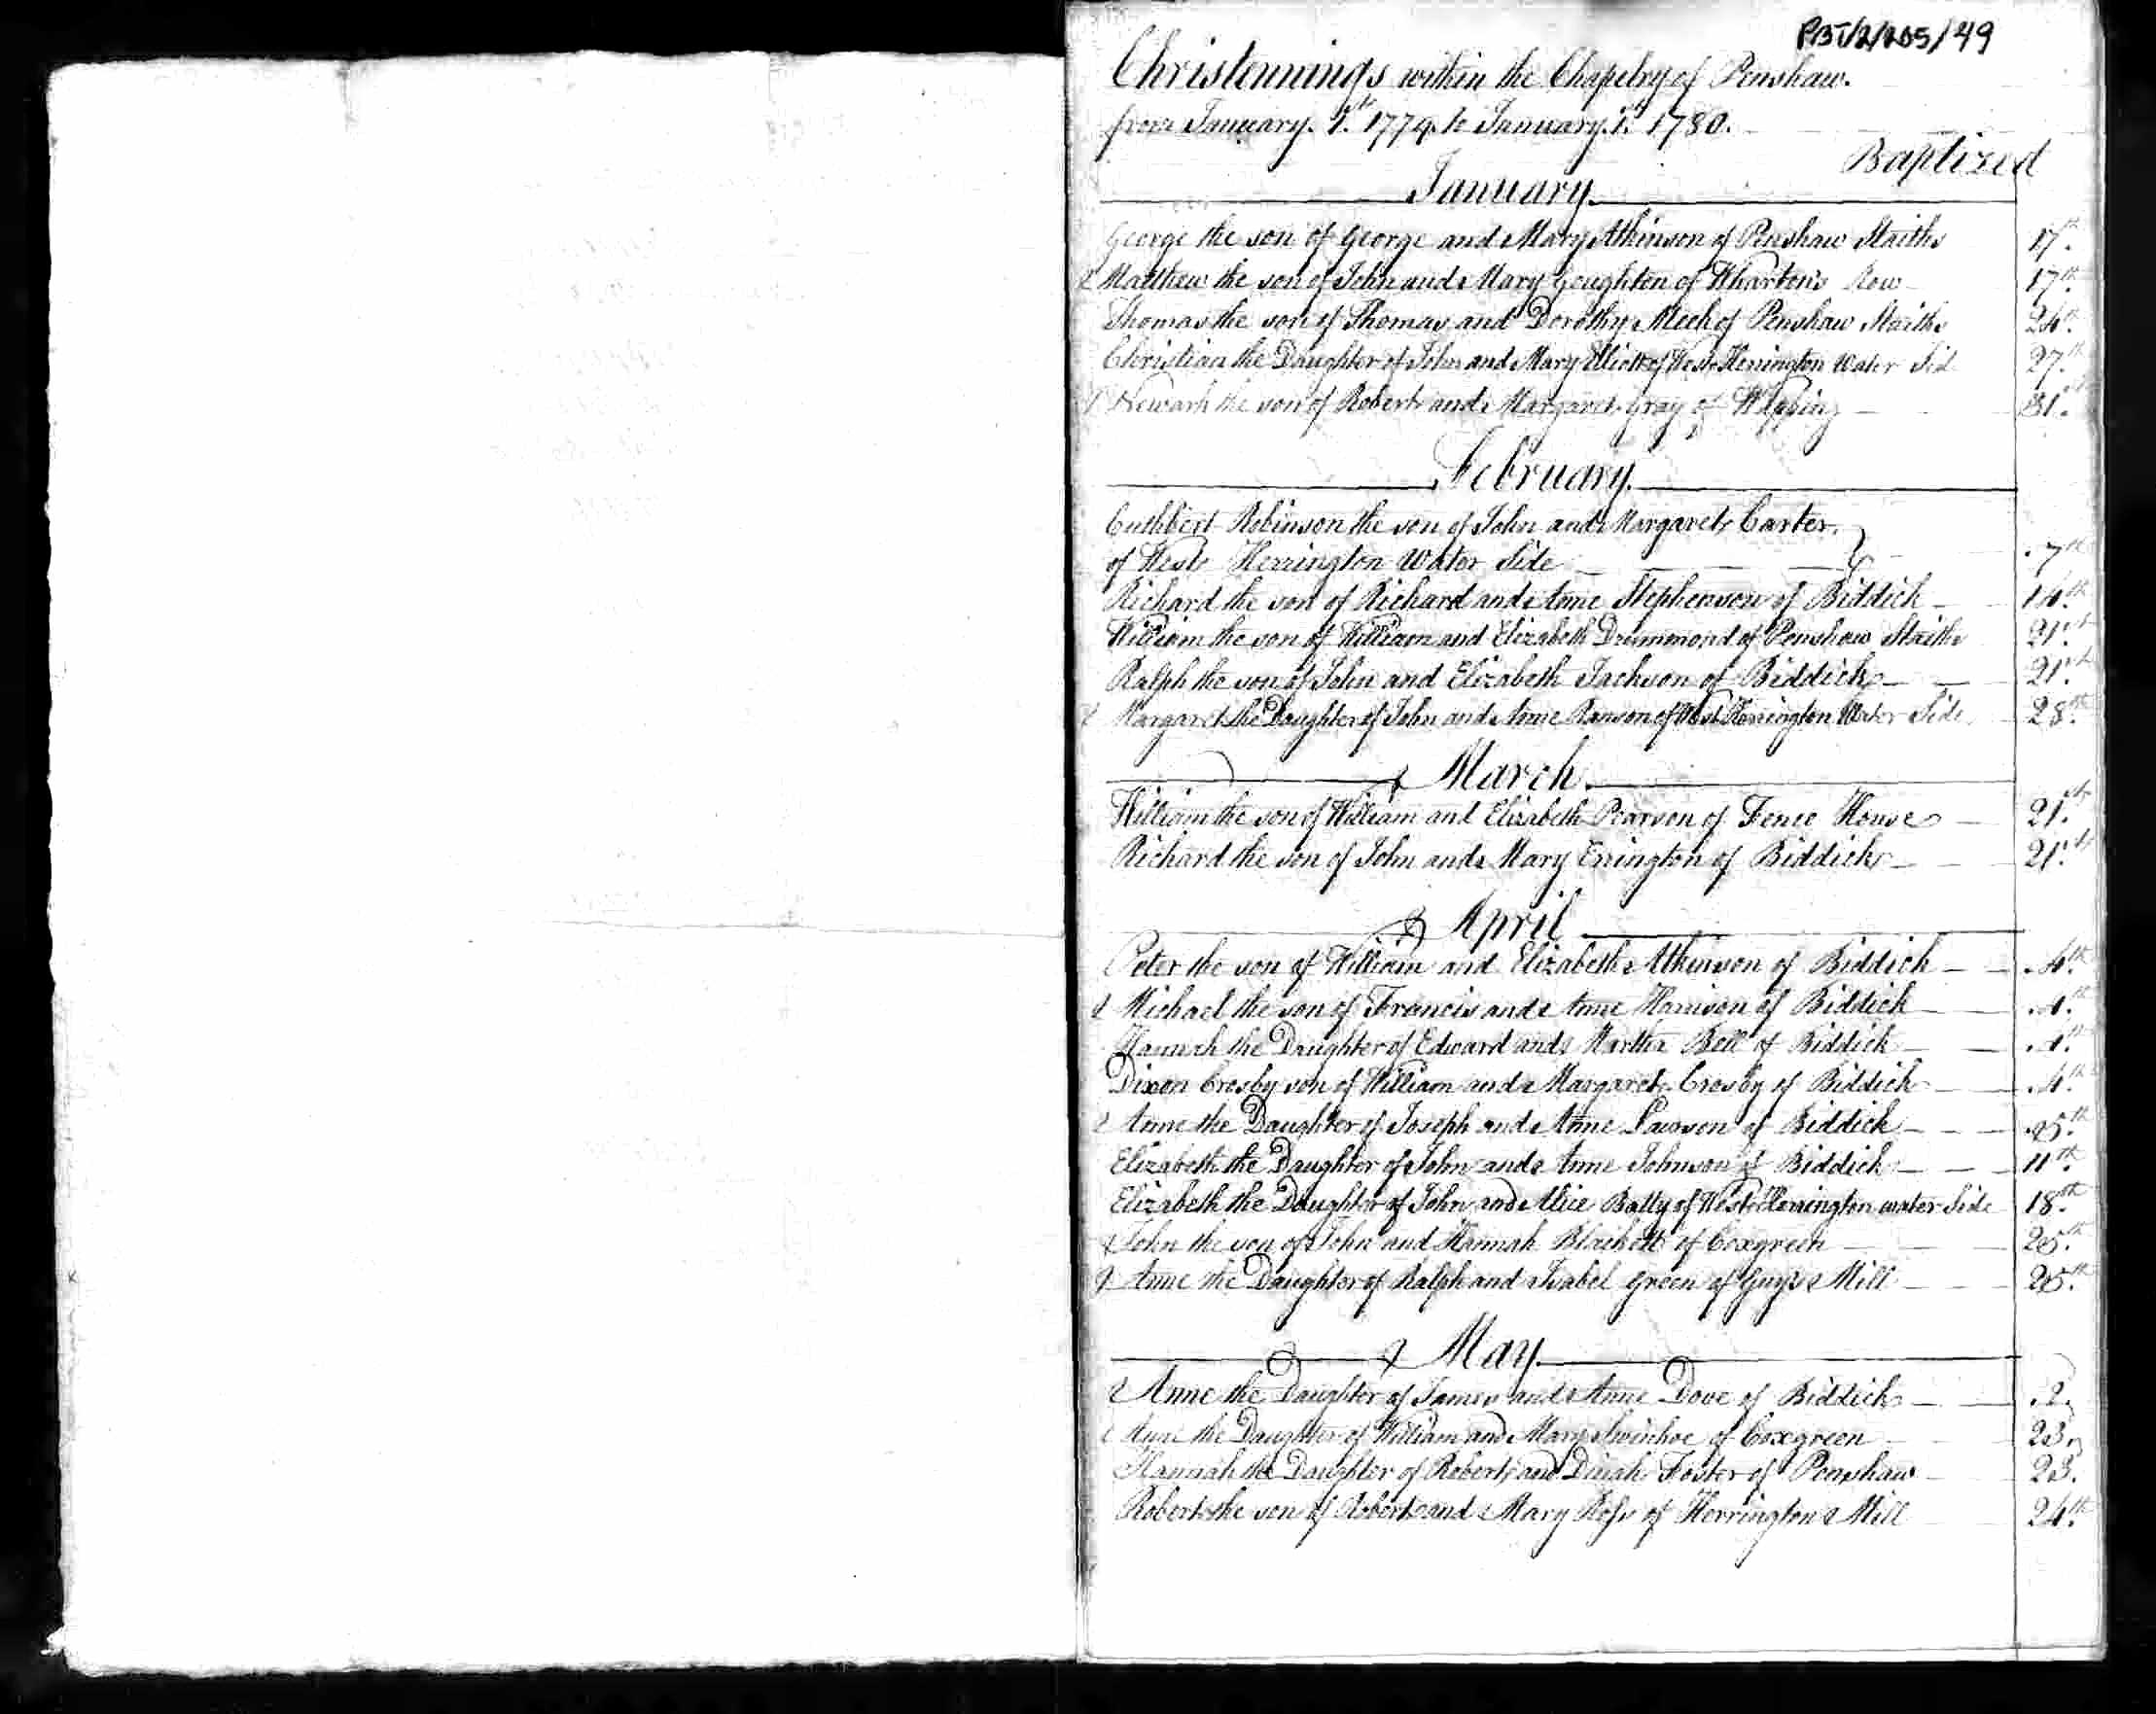 PBT/2/205/49
Christennings within the Chapelry of Penshaw.
from January. 1st. 1779. to January. 1st. 1780.
Baptized
January
George the son of George and Mary Atkinson of Penshaw Staiths 17th.
Matthew the son of John and Mary Goughton of Wharton's Row 17th.
Thomas the son of Thomas and Dorothy Meek of Penshaw Staiths 24th.
Christian the Daughter of John and Mary Elliott of West Herrington Water Sid 27th.
Newark the son of Robert and Margaret Gray of Wapping 31st.
February.
Cuthbert Robinson the son of John and Margaret Carter.
of West Herrington Water Side 7th
Richard the son of Richard and Anne Stephenson of Biddick 14th.
William the son of William and Elizabeth Drummond of Penshaw Staiths 21st.
Ralph the son of John and Elizabeth Jackson of Biddick 21st.
Margaret the Daughter of John and Anne Ranson of West Herrington Water Side 28th.
March.
William the son of William and Elizabeth Pearson of Fence House 21st.
Richard the son of John and Mary Errington of Biddick 21st.
April
Peter the son of William and Elizabeth Atkinson of Biddick 4th.
Michael the son of Francis and Anne Harrison of Biddick 4th.
Hannah the Daughter of Edward and Martha Bell of Biddick 4th.
Dixon Crosby son of William and Margaret Crosby of Biddick 4th.
Anne the Daughter of Joseph and Anne Lawson of Biddick 5th.
Elizabeth the Daughter of John and Anne Johnson of Biddick 11th.
Elizabeth the Daughter of John and Alice Batty of West Herrington water Side 18th.
John the son of John and Hannah Blackett of Coxgreen 25th.
Anne the Daughter of Ralph and Isabel Green of Guy's Mill 25th.
May
Anne the Daughter of James and Anne Dove of Biddick 2.
Anne the Daughter of William and Mary Swinhoe of Coxgreen 23.
Hannah the Daughter of Robert and Dinah Foster of Penshaw 23.
Robert the son of Robert and Mary Ross of Herrington Mill 24th.